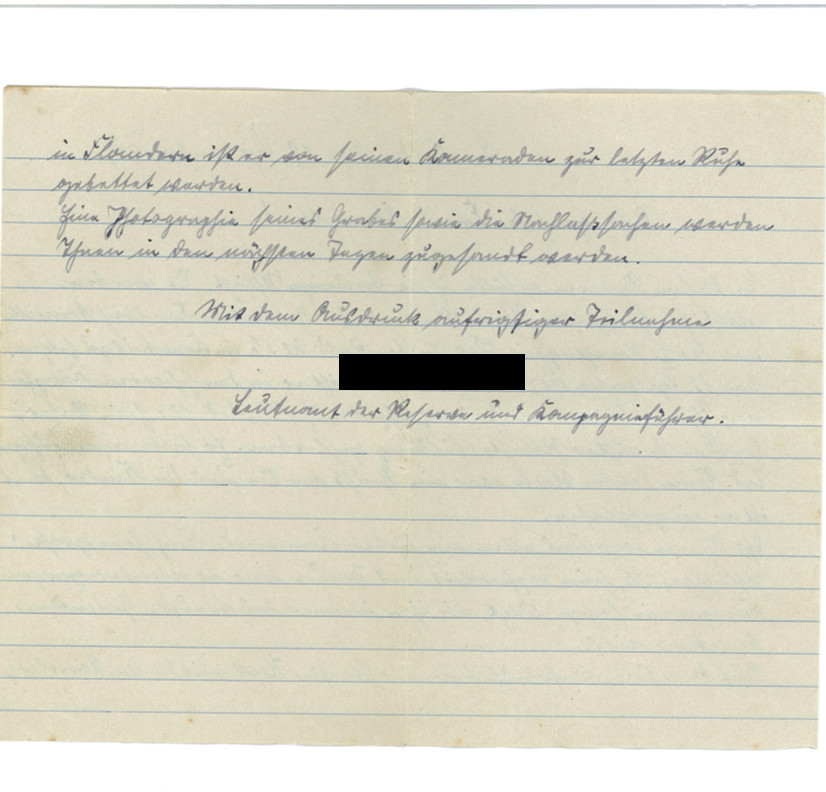 in Flandern ist er von seinen Kameraden zur letzten Ruhe
gebettet worden.
Eine Photographie seines Grabes sowie die Nachlaßsachen werden
Ihnen in den nächsten Tagen zugesandt werden.
Mit dem Ausdruck aufrichtiger Teilnahme
Leutnant der Reserve und Kompagnieführer.